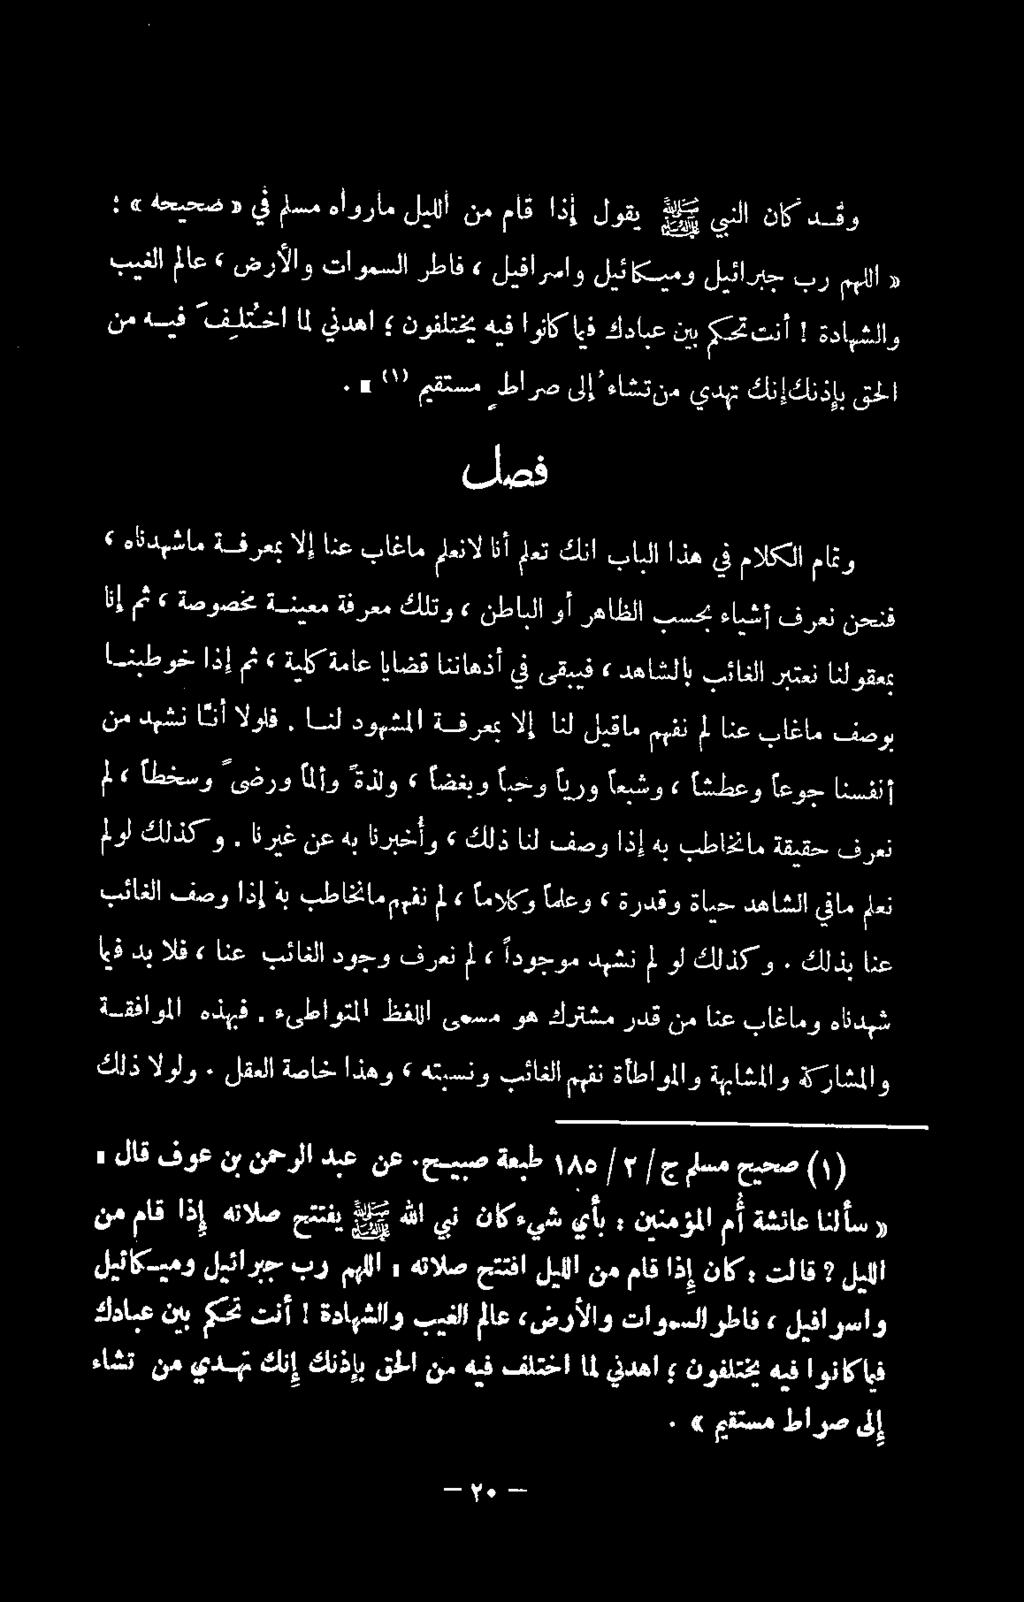 وقد كان النبي ﷺ يقول إذا قام من الليل مارواه مسلم في « صحيحه » :
« اللهم رب جبرائيل وميكائيل واسرافيل ، فاطر السموات والأرض ، عالم الغيب
والشهادة ! أنت تحكم بين عبادك فيما كانوا فيه يختلفون ؛ اهدني لما اختُلِفَ فيه من
الحق بإذنك إنك تهدي من تشاءُ إلى صراطٍ مستقيم (١) » .
فصل
وتمام الكلام في هذا الباب انك تعلم أنا لانعلم ماغاب عنا إلا بمعرفة ماشهدناه ،
فنحن نعرف أشياء بحسب الظاهر أو الباطن ، وتلك معرفة معينة مخصوصة ، ثم إنا
بعقولنا نعتبر الغائب بالشاهد ، فيبقى في أذهاننا قضايا عامة كلية ، ثم إذا خوطبنا
بوصف ماغاب عنا لم نفهم ماقيل لنا إلا بمعرفة المشهود لنا . فلولا أنّا نشهد من
أنفسنا جوعاً وعطشاً ، وشبعاً ورياً وحباً وبغضاً ، ولذةً وألماً ورضىً وسخطاً ، لم
نعرف حقيقة مانخاطب به إذا وصف لنا ذلك ، وأُخبرنا به عن غيرنا . وكذلك لولم
نعلم مافي الشاهد حياة وقدرة ، وعلماً وكلاماً ، لم نفهم مانخاطب به إذا وصف الغائب
عنا بذلك . وكذلك لو لم نشهد موجوداً ، لم نعرف وجود الغائب عنا ، فلا بد فيما
شهدناه وماغاب عنا من قدر مشترك هو مسمى اللفظ المتواطىء . فبهذه الموافقة
والمشاركة والمشابهة والمواطأة نفهم الغائب ونسبته ، وهذا خاصة العقل . ولولا ذلك
(١) صحيح مسلم ج / ٢ / ١٨٥ طبعة صبيح . عن عبد الرحمن بن عوف قال :
« سألنا عائشة أُم المؤمنين : بأي شيء كان نبي الله ﷺ يفتتح صلاته إذا قام من
الليل ؟ قالت : كان إذا قام من الليل افتتح صلاته : اللهم رب جبرائيل وميكائيل
واسرافيل ، فاطر السموات والأرض ، عالم الغيب والشهادة ! أنت تحكم بين عبادك
فيما كانوا فيه يختلفون ؛ اهدني لما اختلف فيه من الحق بإذنك إنك تهدي من تشاء
إلى صراط مستقيم » .
— ٢٠ —